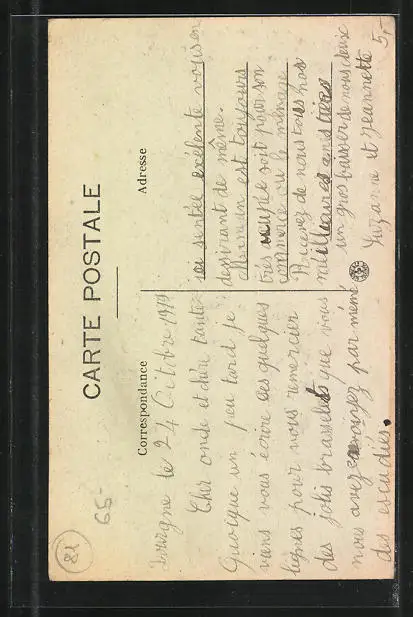 CARTE POSTALE
Correspondance
Adresse
le 24 Octobre 1919
Cher oncle et chère tante
Quoique un peu tard je
viens vous écrire ces quelques
lignes pour vous remercier
des jolis brasselets que vous
nous avez envoyez par mémé
des escudiés.
ici sentée exélente vous en
dessirant de même.
Maman est toujours
très ocupée soit pour son
commerce ou le ménage
Recevez de nous tous nos
meilleures amitiées
un gros baisser de nous deux
Suzanne et Jeannette
81
65-
5,-